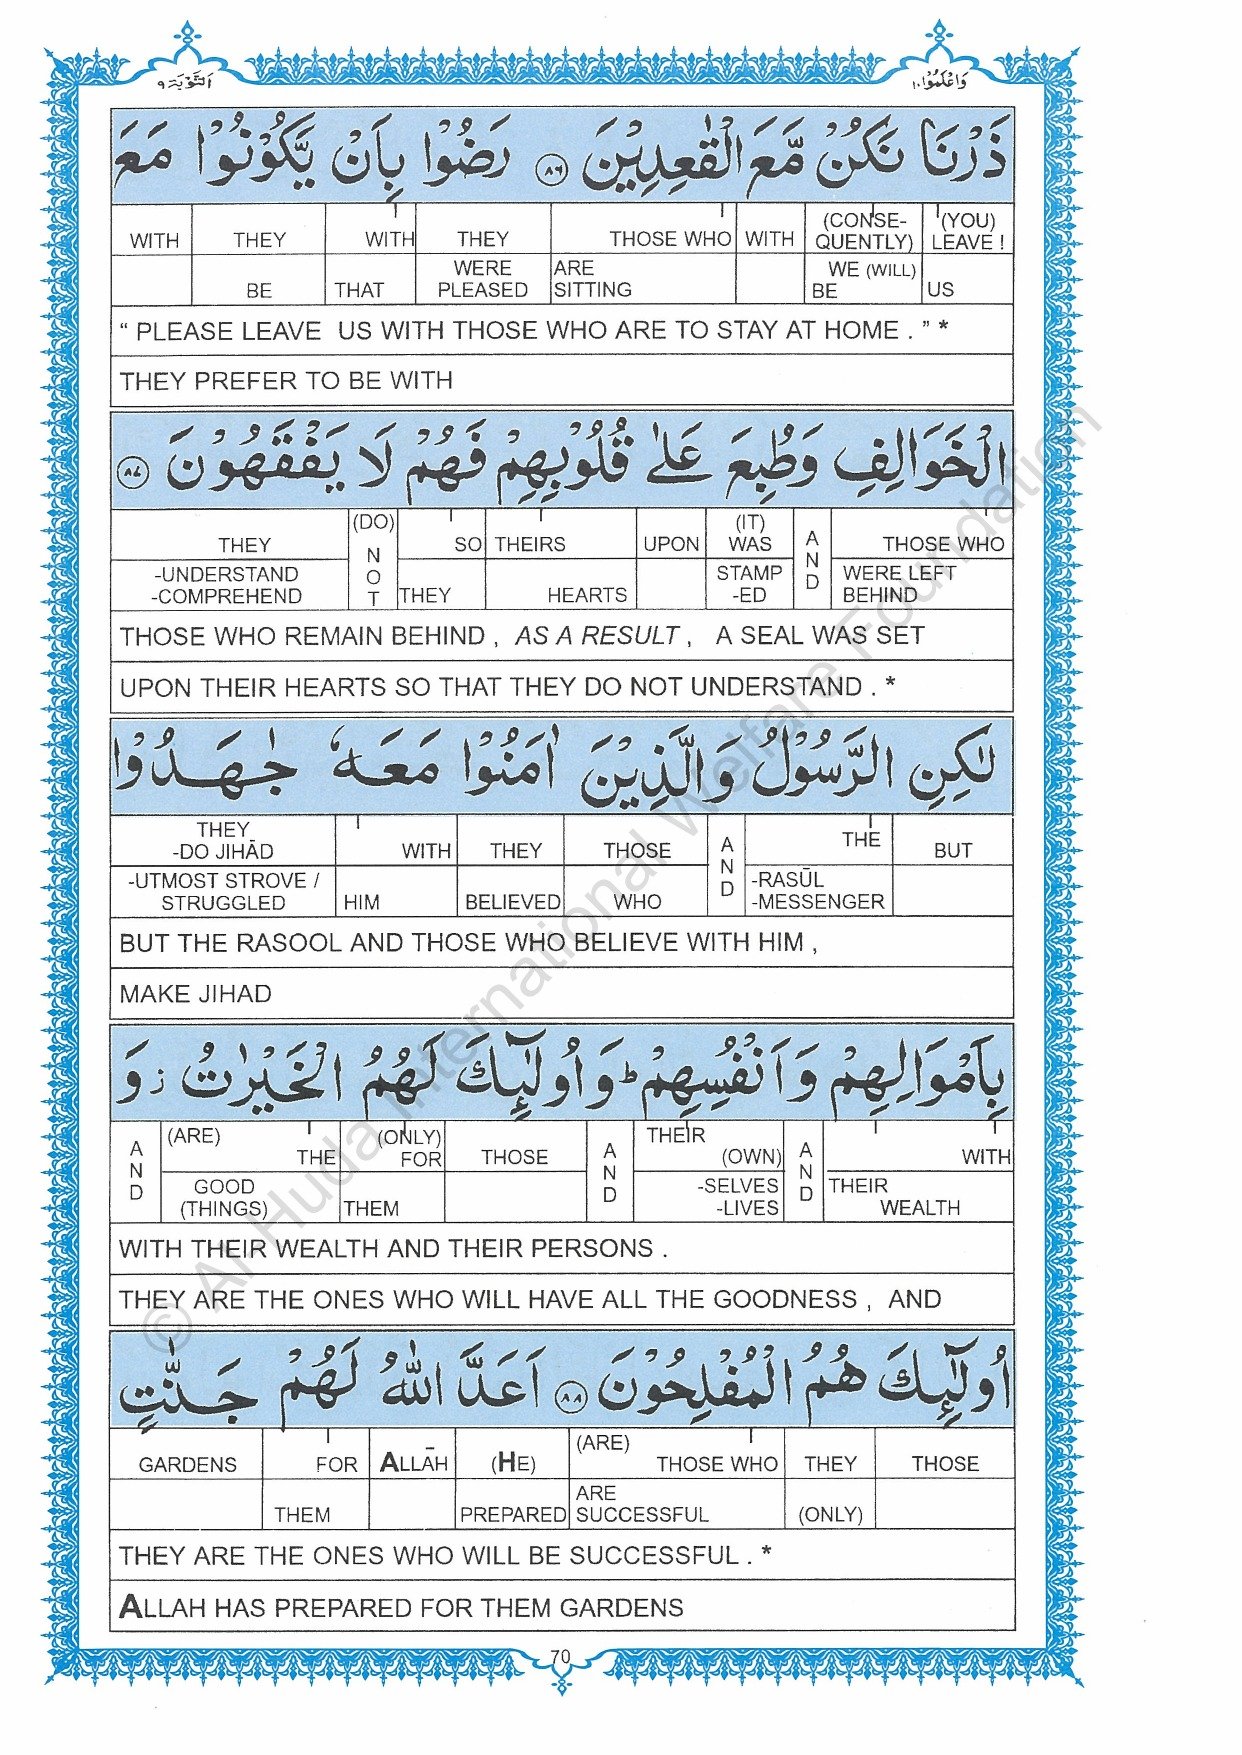 التوبة ٩
واعلموا ١٠
ذَرْنَا نَكُنْ مَّعَ الْقٰعِدِيْنَ ٨٦ رَضُوْا بِاَنْ يَّكُوْنُوْا مَعَ
WITH THEY WITH THEY THOSE WHO WITH (CONSE-QUENTLY) (YOU) LEAVE !
BE THAT WERE PLEASED ARE SITTING WE (WILL) BE US
“ PLEASE LEAVE US WITH THOSE WHO ARE TO STAY AT HOME . ” *
THEY PREFER TO BE WITH
الْخَوَالِفِ وَطُبِعَ عَلٰى قُلُوْبِهِمْ فَهُمْ لَا يَفْقَهُوْنَ ٨٧
THEY (DO) NOT SO THEIRS UPON (IT) WAS AND THOSE WHO
-UNDERSTAND -COMPREHEND THEY HEARTS STAMP -ED WERE LEFT BEHIND
THOSE WHO REMAIN BEHIND , AS A RESULT , A SEAL WAS SET
UPON THEIR HEARTS SO THAT THEY DO NOT UNDERSTAND . *
لٰكِنِ الرَّسُوْلُ وَالَّذِيْنَ اٰمَنُوْا مَعَهٗ جٰهَدُوْا
THEY -DO JIHĀD WITH THEY THOSE AND THE BUT
-UTMOST STROVE / STRUGGLED HIM BELIEVED WHO -RASŪL -MESSENGER
BUT THE RASOOL AND THOSE WHO BELIEVE WITH HIM ,
MAKE JIHAD
بِاَمْوَالِهِمْ وَاَنْفُسِهِمْ ؕ وَاُولٰٓئِكَ لَهُمُ الْخَيْرٰتُ ز وَ
AND (ARE) THE (ONLY) FOR THOSE AND THEIR (OWN) AND WITH
GOOD (THINGS) THEM -SELVES -LIVES THEIR WEALTH
WITH THEIR WEALTH AND THEIR PERSONS .
THEY ARE THE ONES WHO WILL HAVE ALL THE GOODNESS , AND
اُولٰٓئِكَ هُمُ الْمُفْلِحُوْنَ ٨٨ اَعَدَّ اللّٰهُ لَهُمْ جَنّٰتٍ
GARDENS FOR ALLĀH (HE) (ARE) THOSE WHO THEY THOSE
THEM PREPARED ARE SUCCESSFUL (ONLY)
THEY ARE THE ONES WHO WILL BE SUCCESSFUL . *
ALLAH HAS PREPARED FOR THEM GARDENS
70
© Al Huda International Welfare Foundation